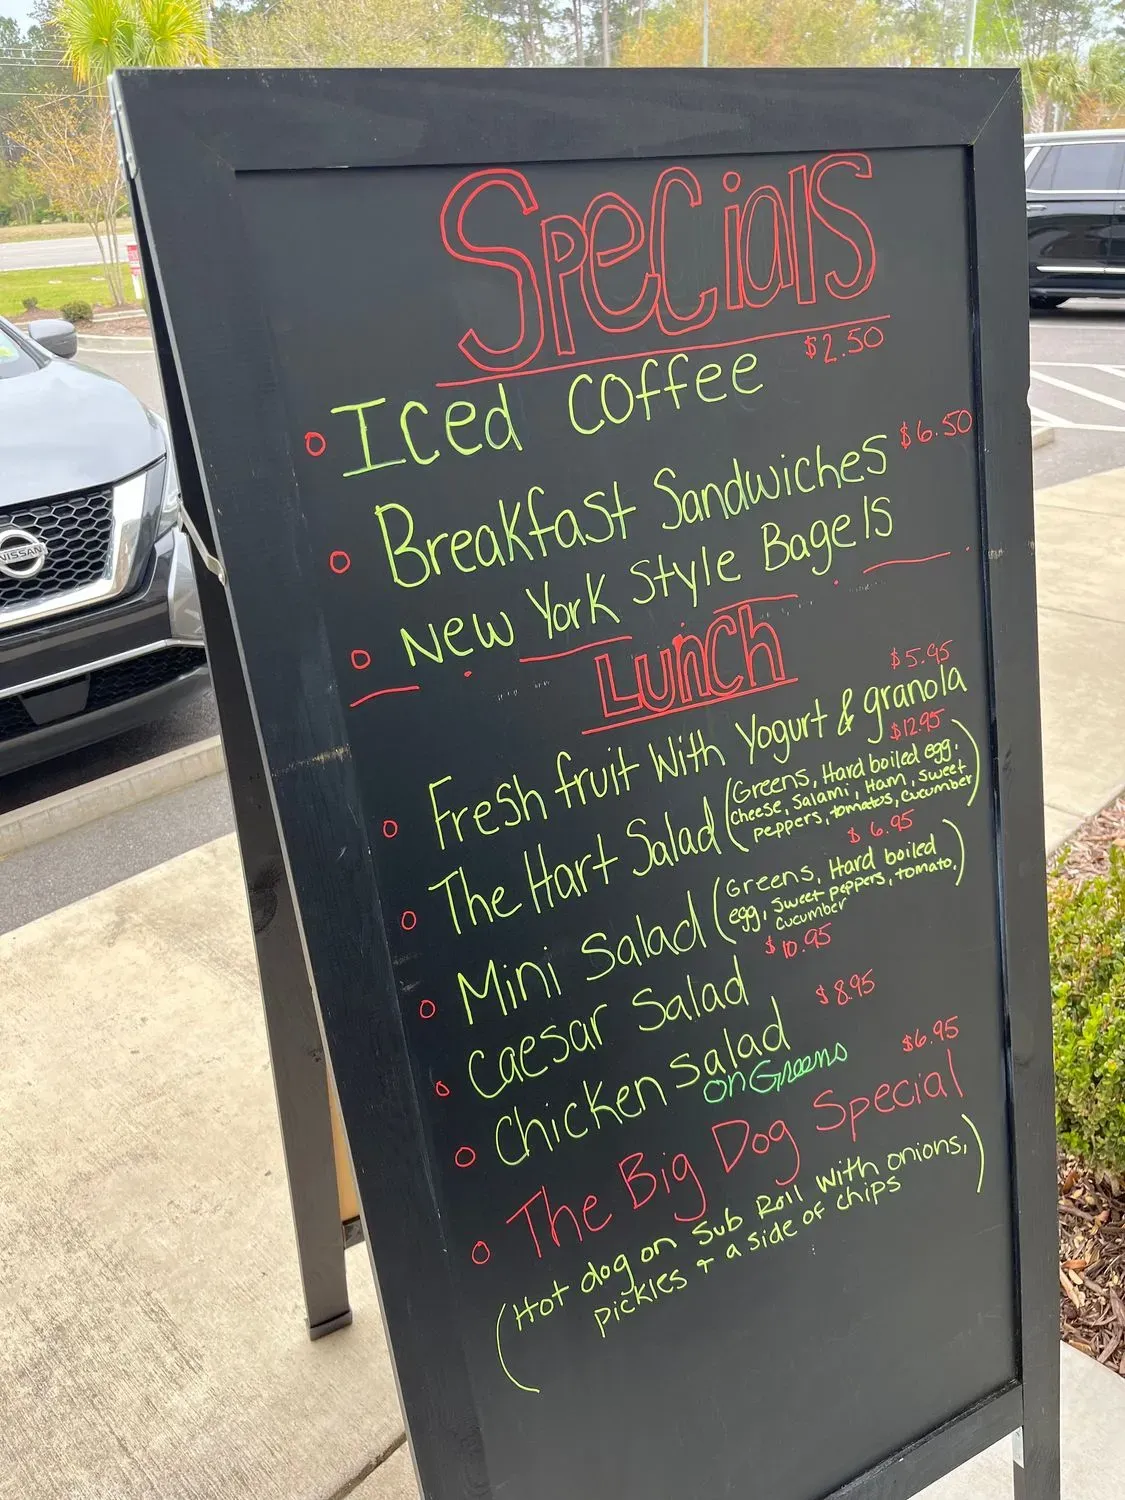 Specials
Iced Coffee $2.50
Breakfast Sandwiches $6.50
New York Style Bagels
Lunch
$5.95
Fresh fruit With Yogurt & granola
$12.95
The Hart Salad (Greens, Hard boiled egg,
Cheese, Salami, Ham, Sweet
peppers, tomatos, cucumber)
$6.95
Mini Salad (Greens, Hard boiled
egg, Sweet peppers, tomato,
cucumber)
$10.95
Caesar Salad
$8.95
Chicken Salad
on Greens
$6.95
The Big Dog Special
(Hot dog on Sub Roll with onions,
pickles + a side of chips)
NISSAN